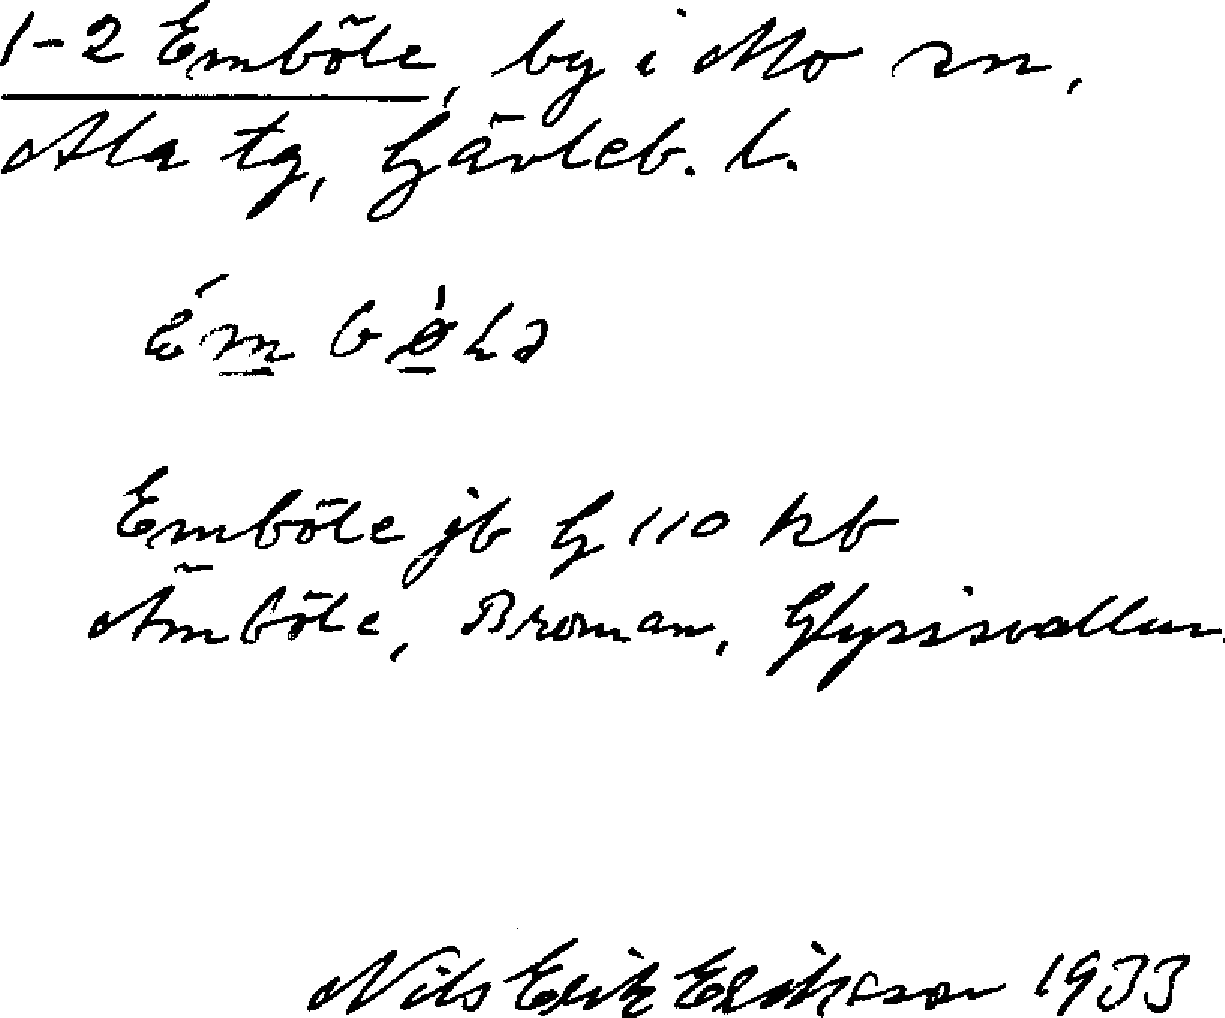 1-2 Emböle, by i Mo sn,
Ala tg, Gävleb. l.
Emböle jb G 110 kb
Ämböle, Broman, Glysisvallur.
Nils Erik Erikson 1933